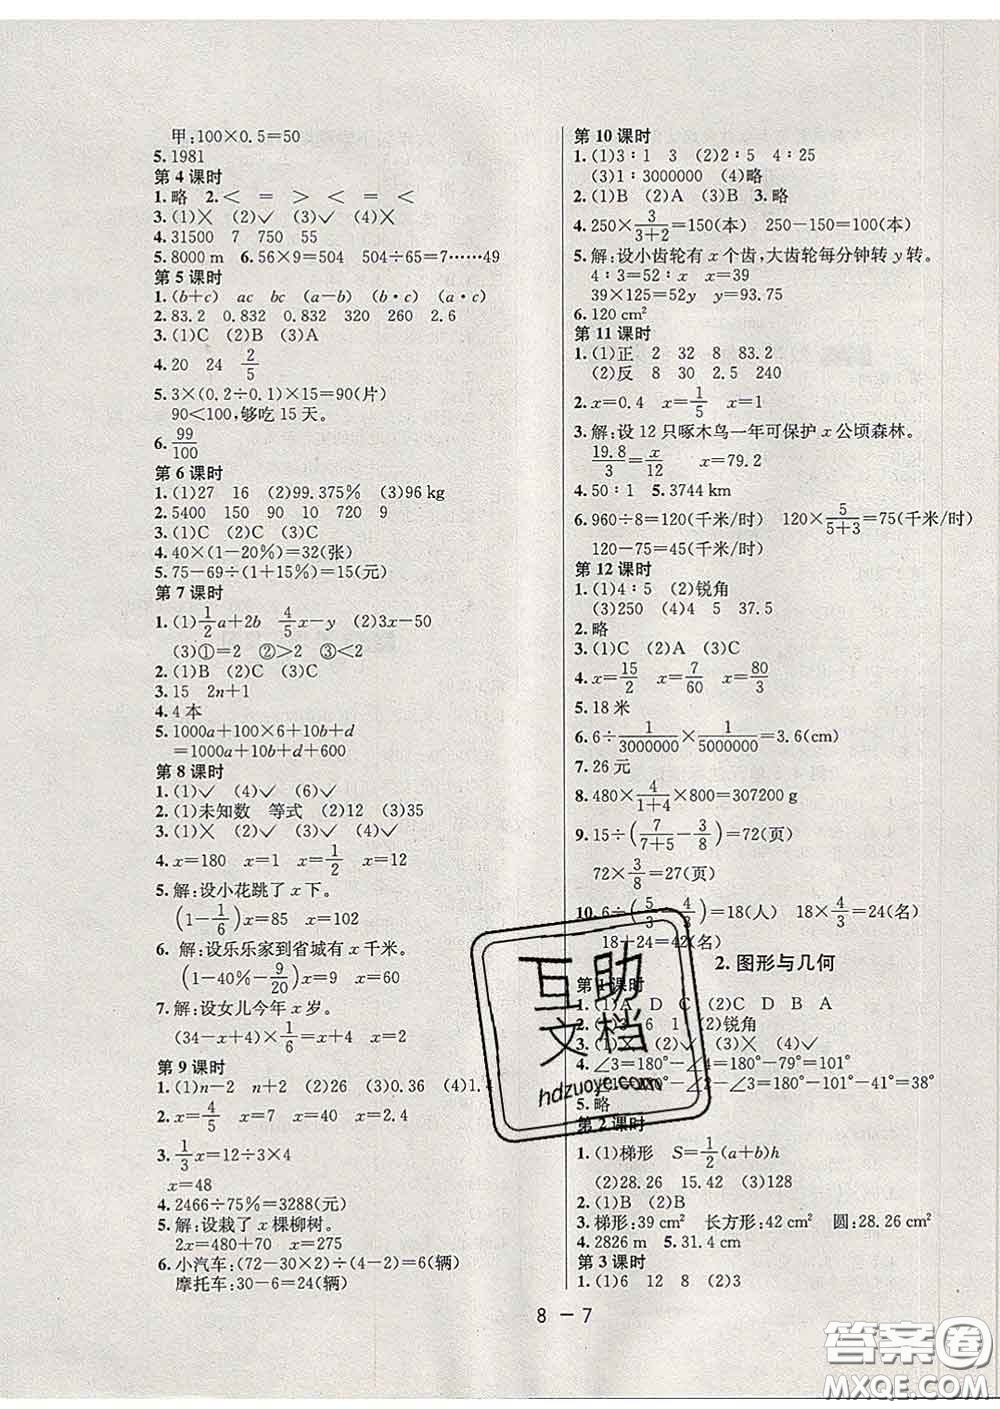 甲:100×0.5=50
5.1981
第4课时
1.略 2.< = > < = <
3.(1)× (2)✓ (3)✓ (4)×
4.31500 7 750 55
5.8000 m 6.56×9=504 504÷65=7……49
第5课时
1.(b+c) ac bc (a-b) (b·c) (a-c)
2.83.2 0.832 0.832 320 260 2.6
3.(1)C (2)B (3)A
4.20 24 2/5
5.3×(0.2÷0.1)×15=90(片)
90<100,够吃15天。
6.99/100
第6课时
1.(1)27 16 (2)99.375% (3)96 kg
2.5400 150 90 10 720 9
3.(1)C (2)C (3)C
4.40×(1-20%)=32(张)
5.75-69÷(1+15%)=15(元)
第7课时
1.(1)1/2a+2b 4/5x-y (2)3x-50
(3)①=2 ②>2 ③<2
2.(1)B (2)C (3)C
3.15 2n+1
4.4本
5.1000a+100×6+10b+d
=1000a+10b+d+600
第8课时
1.(1)✓ (4)✓ (6)✓
2.(1)未知数 等式 (2)12 (3)35
3.(1)× (2)✓ (3)✓ (4)✓
4.x=180 x=1 x=1/2 x=12
5.解:设小花跳了x下。
(1-1/6)x=85 x=102
6.解:设乐乐家到省城有x千米。
(1-40%-9/20)x=9 x=60
7.解:设女儿今年x岁。
(34-x+4)×1/6=x x=2
第9课时
1.(1)n-2 n+2 (2)26 (3)0.25 (4)1.
2.x=4/5 x=7 x=40 x=2.4
3.1/3x=12÷3×4
x=48
4.2466÷75%=3288(元)
5.解:设栽了x棵柳树。
2x=480+70 x=275
6.小汽车:(72-30×2)÷(4-2)=6(辆)
摩托车:30-6=24(辆)
第10课时
1.(1)3∶1 3 (2)2∶5 4∶25
(3)1∶3000000 (4)略
2.(1)B (2)A (3)B 3.略
4.250×3/(3+2)=150(本) 250-150=100(本)
5.解:设小齿轮有x个齿,大齿轮每分钟转y转。
4∶3=52∶x x=39
39×125=52y y=93.75
6.120 cm²
第11课时
1.(1)正 2 32 8 83.2
(2)反 8 30 2.5 240
2.x=0.4 x=1/5 x=1
3.解:设12只啄木鸟一年可保护x公顷森林。
19.8/3=x/12 x=79.2
4.50∶1 5.3744 km
6.960÷8=120(千米/时) 120×5/(5+3)=75(千米/时)
120-75=45(千米/时)
第12课时
1.(1)4∶5 (2)锐角
(3)250 (4)4 5 37.5
2.略
3.(1)C (2)A (3)C
4.x=15/2 x=7/60 x=80/3
5.18米
6.6÷1/3000000×1/5000000=3.6(cm)
7.26元
8.480×4/(1+4)×800=307200 g
9.15÷(7/(7+5)-3/8)=72(页)
72×3/8=27(页)
10.6÷(5/3-4/3)=18(人) 18×4/3=24(名)
18+24=42(名)
2.图形与几何
第1课时
1.(1)A D C (2)C D B A
2.(1) 6 1 (2)锐角
3.(1)× (2)✓ (3)✓ (4)✓
4.∠3=180°-∠4=180°-79°=101°
∠1=180°-∠2-∠3=180°-101°-41°=38°
5.略
第2课时
1.(1)梯形 S=1/2(a+b)h
(2)28.26 15.42 (3)128
2.(1)B (2)B
3.梯形:39 cm² 长方形:42 cm² 圆:28.26 cm²
4.2826 m 5.31.4 cm
第3课时
1.(1)6 12 8 (2)3
8-7
互助文档
hdzuoye.com
答案圈
MXQE.COM